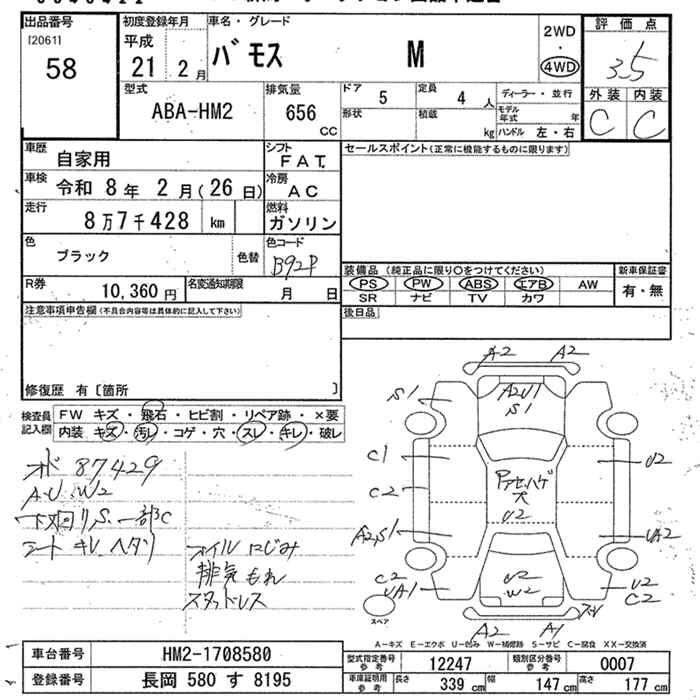 出品番号 初度登録年月 車名・グレード 2WD・4WD 評価点
[20611] 平成 バモス M 3.5
58 21 2月 外装 内装
型式 排気量 ドア 定員 ディーラー・並行 C C
ABA-HM2 656 CC 5 4 人 モデル年式 年
形状 積載 kg ハンドル 左・右
車歴 自家用 シフト FAT. セールスポイント(正常に機能するものに限ります)
車検 令和 8年 2月(26日) 冷房 AC
走行 8万7千428 km 燃料 ガソリン
色 ブラック 色替 色コード B92P
装備品 (純正品に限り○をつけてください) 新車保証書
R券 10,360円 名変通知期限 月 日 PS PW ABS エアB AW 有・無
SR ナビ TV カワ
注意事項申告欄(不具合内容等は具体的に記入して下さい) 後日品
修復歴 有〔箇所 〕
検査員記入欄 FW キズ・飛石・ヒビ割・リペア跡・×要
内装 キズ・汚レ・コゲ・穴・スレ・キレ・破レ
A2 A2
S1 A2U1 S1
C1 U2
C2 アクセハゲ 穴 U2
A2,S1 UA2
C2 UA1 U2 W2 U2 C2
A2 A1
スペア
オド 87429
A.U.W2
下廻り S.一部C
シート キレ ヘタリ オイルにじみ
排気もれ
スタッドレス
A-キズ E-エクボ U-凹み W-補修跡 S-サビ C-腐食 XX-交換済
車台番号 HM2-1708580 型式指定番号 参考 12247 類別区分番号 参考 0007
登録番号 長岡 580 す 8195 車庫証明用 参考 長さ 339 cm 幅 147 cm 高さ 177 cm